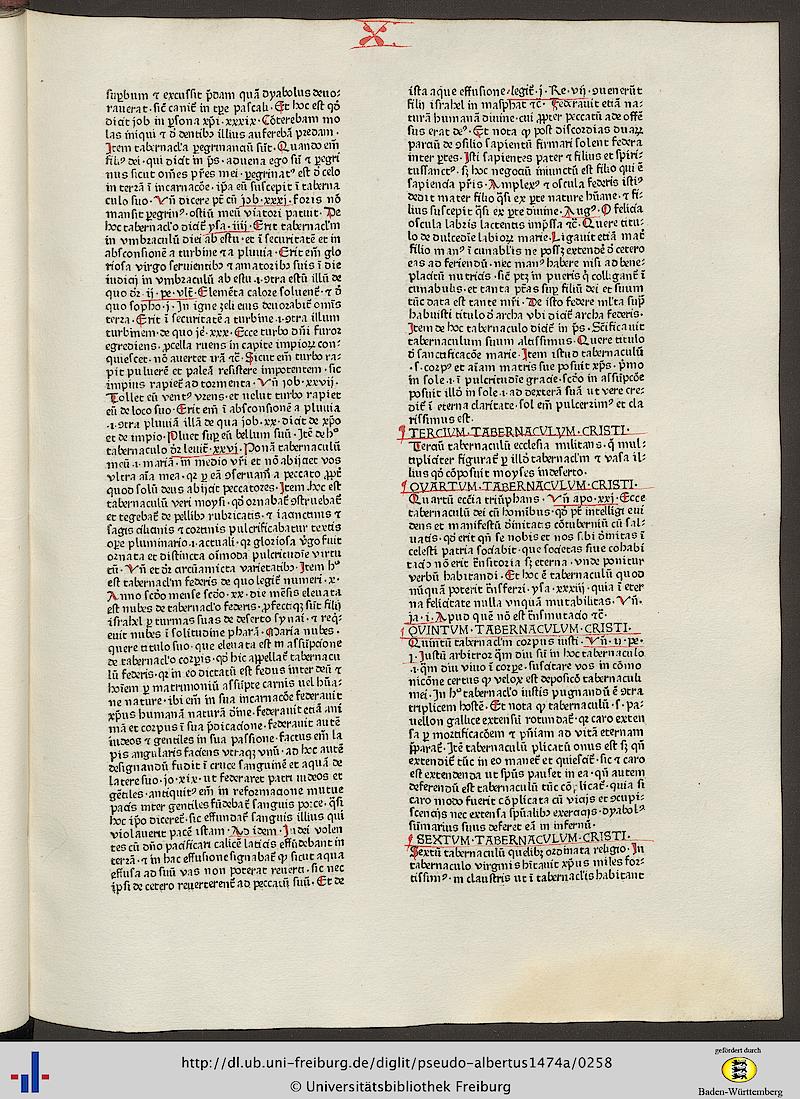 X
suꝑbum ⁊ excussit p̄dam quā dyabolus deuo⸗
rauerat · sic̄ canit̄ in tp̄e pascali · Et hoc est qđ
dicit job in ꝑsona xp̄i · xxxix · Cōterebam mo
las iniqui ⁊ đ dentibꝰ illius auferebā predam ·
Item tabernac̄la peregrinanciū sūt · Quando em̄
filiꝰ dei · qui dicit in ps̄ · aduena ego sū ⁊ peregri
nus sicut om̄es pr̄es mei · peregrinatꝰ est đ celo
in terrā ī incarnacōe · ip̄a eū suscepit ī taberna
culo suo · Vn̄ dicere pt̄ cū job · xxxj · foris nō
mansit peregrinꝰ · ostiū meū viatori patuit · De
hoc tabernac̄lo dicit̄ ysa · iiij · Erit tabernac̄lm
in vmbraculū diei ab estu · et ī securitatē et in
absconsionē a turbine ⁊ a pluuia · Erit em̄ glo
riosa virgo seruientibꝰ ⁊ amatoribꝰ suis ī die
iudicij in vmbraculū ab estu · i · ɔtra estū illū de
quo dr̄ · ij · pe · vlt̄ · Elemēta calore soluent̄ · ⁊ đ
quo sopho · j · In igne zeli eius deuorabit̄ om̄is
terra · Erit ī securitatē a turbine · i · ɔtra illum
turbinem · de quo je · xxx · Ecce turbo dn̄i furor
egrediens · ꝓcella ruens in capite impioꝝ con⸗
quiescet · nō auertet irā ⁊c̄ · Sicut em̄ turbo ra⸗
pit puluerē et paleā resistere impotentem · sic
impius rapiet̄ ad tormenta · Vn̄ job · xxvij ·
Tollet eū ventꝰ vrens · et velut turbo rapiet
eū de loco suo · Erit em̄ ī absconsionē a pluuia
· i · ɔtra pluuiā illā de qua job · xx · dicit̄ de xp̄o
et de impio · Pluet suꝑ eū bellum suū · Itē de hꝰ
tabernaculo dr̄ leuit̄ · xxvj · Ponā tabernaculū
meū · i · mariā · in medio vr̄i et nō abijciet vos
vltra aīa mea · qꝛ ꝑ eā ɔseruam̄ a peccato · ꝓpt̄
quod solū deus abijcit peccatores · Item hoc est
tabernaculū veri moysi · qđ ornabat̄ ɔstruebat̄
et tegebat̄ de pellibꝰ rubricatis · ⁊ iacinctinis ⁊
sagis cilicinis ⁊ cortinis pulcrificabatur textis
oꝑe plumario · i · actuali · qꝛ gloriosa v̄go fuit
ornata et distincta oīmoda pulcritudīe virtu
tū · Vn̄ et dr̄ circūamicta varietatibꝰ · Item hꝰ
est tabernac̄lm federis de quo legit̄ numeri · x ·
Anno scđo mense scđo · xx · die mēsis eleuata
est nubes de tabernac̄lo federis · ꝓfectiqꝫ sūt filij
israhel ꝑ turmas suas de deserto synai · ⁊ req̄⸗
euit nubes ī solitudine pharā · Maria nubes ·
quere titulo suo · que eleuata est in assūpcione
de tabernac̄lo corꝑis · qđ hic appellat̄ tabernacu
lū federis · qꝛ in eo dictatū est fedus inter deū ⁊
hoīem ꝑ matrimoniū assūpte carnis uel hūa⸗
ne nature · ibi em̄ in sua incarnacōe federauit
xp̄us humanā naturā dīne · federauit etiā ani
mā et corpus ī sua p̄dicacione · federauit autē
iudeos ⁊ gentiles in sua passione · factus em̄ la
pis angularis faciens vtraqꝫ vnū · ad hoc autē
designandū fudit ī cruce sanguinē et aquā de
latere suo · jo · xix · ut federaret patri iudeos et
gētiles · antiquitꝰ em̄ in reformacione mutue
pacis inter gentiles fūdebat̄ sanguis porce · q̄si
hoc ip̄o dicere · sic effundat̄ sanguis illius qui
violauerit pacē istam · Ad idem · Iudei volen
tes cū dn̄o pacificari calicē laticis effūdebant in
terrā · ⁊ in hac effusione signabat̄ ꝙ sicut aqua
effusa ad suū vas non poterat reuerti · sic nec
ip̄si de cetero reuerterent̄ ad peccatū suū · Et de
ista aque effusione · legit̄ · j · Re · vij · ɔuenerūt
filij israhel in masphat ⁊c̄ · Federauit etiā na⸗
turā humanā diuine · cui ꝓpter peccatū ade offē
sus erat deꝰ · Et nota ꝙ post discordias duaꝝ
parciū de ɔsilio sapientū firmari solent federa
inter ꝑtes · Isti sapientes pater ⁊ filius et spiri⸗
tussanctꝰ · sꝫ hoc negociū iniunctū est filio qui ē
sapiencia pr̄is · Amplexꝰ ⁊ oscula federis istiꝰ
dedit mater filio q̄si ex ꝑte nature hūane · ⁊ fi⸗
lius suscepit q̄si ex ꝑte diuine · Augꝰ · O felicia
oscula labris lactentis imp̄ssa ⁊c̄ · Quere titu⸗
lo de dulcedīe labioꝝ marie · Ligauit etiā mat̄
filio manꝰ ī cunabilis ne posset extendē đ cetero
eas ad feriendū · nec manꝰ habere nisi ad bene⸗
placitū nutricis · sic̄ ptꝫ in pueris q̄ colligant̄ ī
cunabulis · et tanta ptās suꝑ filiū dei et suum
tūc data est tante mr̄i · De isto federe ml̄ta suꝑ
habuisti titulo đ archa vbi dicit̄ archa federis ·
Item de hoc tabernaculo dicit̄ in ps̄ · Sc̄ificauit
tabernaculum suum altissimus · Quere titulo
đ sanctificacōe marie · Item istud tabernaculū
· s · corpꝰ et aīam matris sue posuit xp̄s · p̄mo
in sole · i · ī pulcritudīe gracie · scđo in assūpcōe
posuit illđ in sole · i · ad dexterā suā ut vere cre⸗
dit̄ ī eterna claritate · sol em̄ pulcerrimꝰ et cla
rissimus est ·
TERCIVM · TABERNACVLVM · CRISTI ·
Terciū tabernaculū ecclesia militans · q̄ mul⸗
tipliciter figurat̄ ꝑ illđ tabernac̄lm ⁊ vasa il⸗
lius qđ cōposuit moyses in deserto ·
QVARTVM · TABERNACVLVM · CRISTI ·
Quartū ecc̄ia triūphans · Vn̄ apo · xxj · Ecce
tabernaculū dei cū hominibus · qđ pt̄ intelligi eui
dens et manifestū dīnitatis cōtuberniū cū sal⸗
uatis · qđ erit qn̄ se nobis et nos sibi dīnitas ī
celesti patria sociabit · que societas siue cohabi
tacio nō erit trāsitoria sꝫ eterna · vnde ponitur
verbū habitandi · Et hoc ē tabernaculū quod
nūquā poterit trāsferri · ysa · xxxiij · quia ī eter
na felicitate nulla vnquā mutabilitas · Vn̄ ·
ja · i · Apud quē nō est trāsmutacio ⁊c̄ ·
QVINTVM · TABERNACVLVM · CRISTI ·
Quintū tabernac̄lm corpus iusti · Vn̄ · ij · pe ·
j · Iustū arbitror q̄m diu sū in hoc tabernac̄lo
· i · q̄m diu viuo ī corꝑe · suscitare vos in cōmo
nicōne certus ꝙ velox est deposicō tabernaculi
mei · In hꝰ tabernac̄lo iustis pugnandū ē ɔtra
triplicem hostē · Et nota ꝙ tabernaculū · s · pa⸗
uellon gallice extensū rotundat̄ · qꝛ caro exten
sa ꝑ mortificacōem ⁊ pn̄iam ad vitā eternam
p̄parat̄ · Itē tabernaculū plicatū onus est sꝫ qn̄
extendit̄ tūc in eo manet̄ et quiescit̄ · sic ⁊ caro
est extendenda ut sp̄us pauset in ea · qn̄ autem
deferendū est tabernaculū tūc cōplicat̄ · quia si
caro modo fuerit cōplicata cū vicijs et ɔcupi⸗
scencijs nec extensa sp̄ualibꝰ exercicijs · dyabolꝰ
sūmarius suus deferet eā in infernū ·
SEXTVM · TABERNACVLVM · CRISTI ·
Sextū tabernaculū quelibꝫ ordinata religio · In
tabernaculo virginis hītauit xp̄us miles for⸗
tissimꝰ · in claustris ut ī tabernac̄lis habitant
http://dl.ub.uni-freiburg.de/diglit/pseudo-albertus1474a/0258
© Universitätsbibliothek Freiburg
gefördert durch
Baden-Württemberg